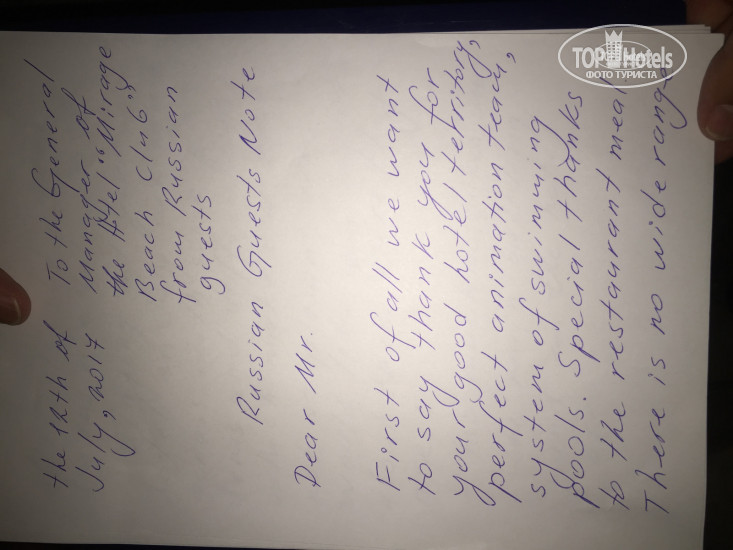 the 12th of
July, 2017
To the General
Manager of
the Hotel "Mirage
Beach Club"
from Russian
guests
Russian Guests Note
Dear Mr.
First of all we want
to say thank you for
your good hotel territory,
perfect animation team,
system of swimming
pools. Special thanks
to the restaurant meal
There is no wide range
TOP Hotels
ФОТО ТУРИСТА